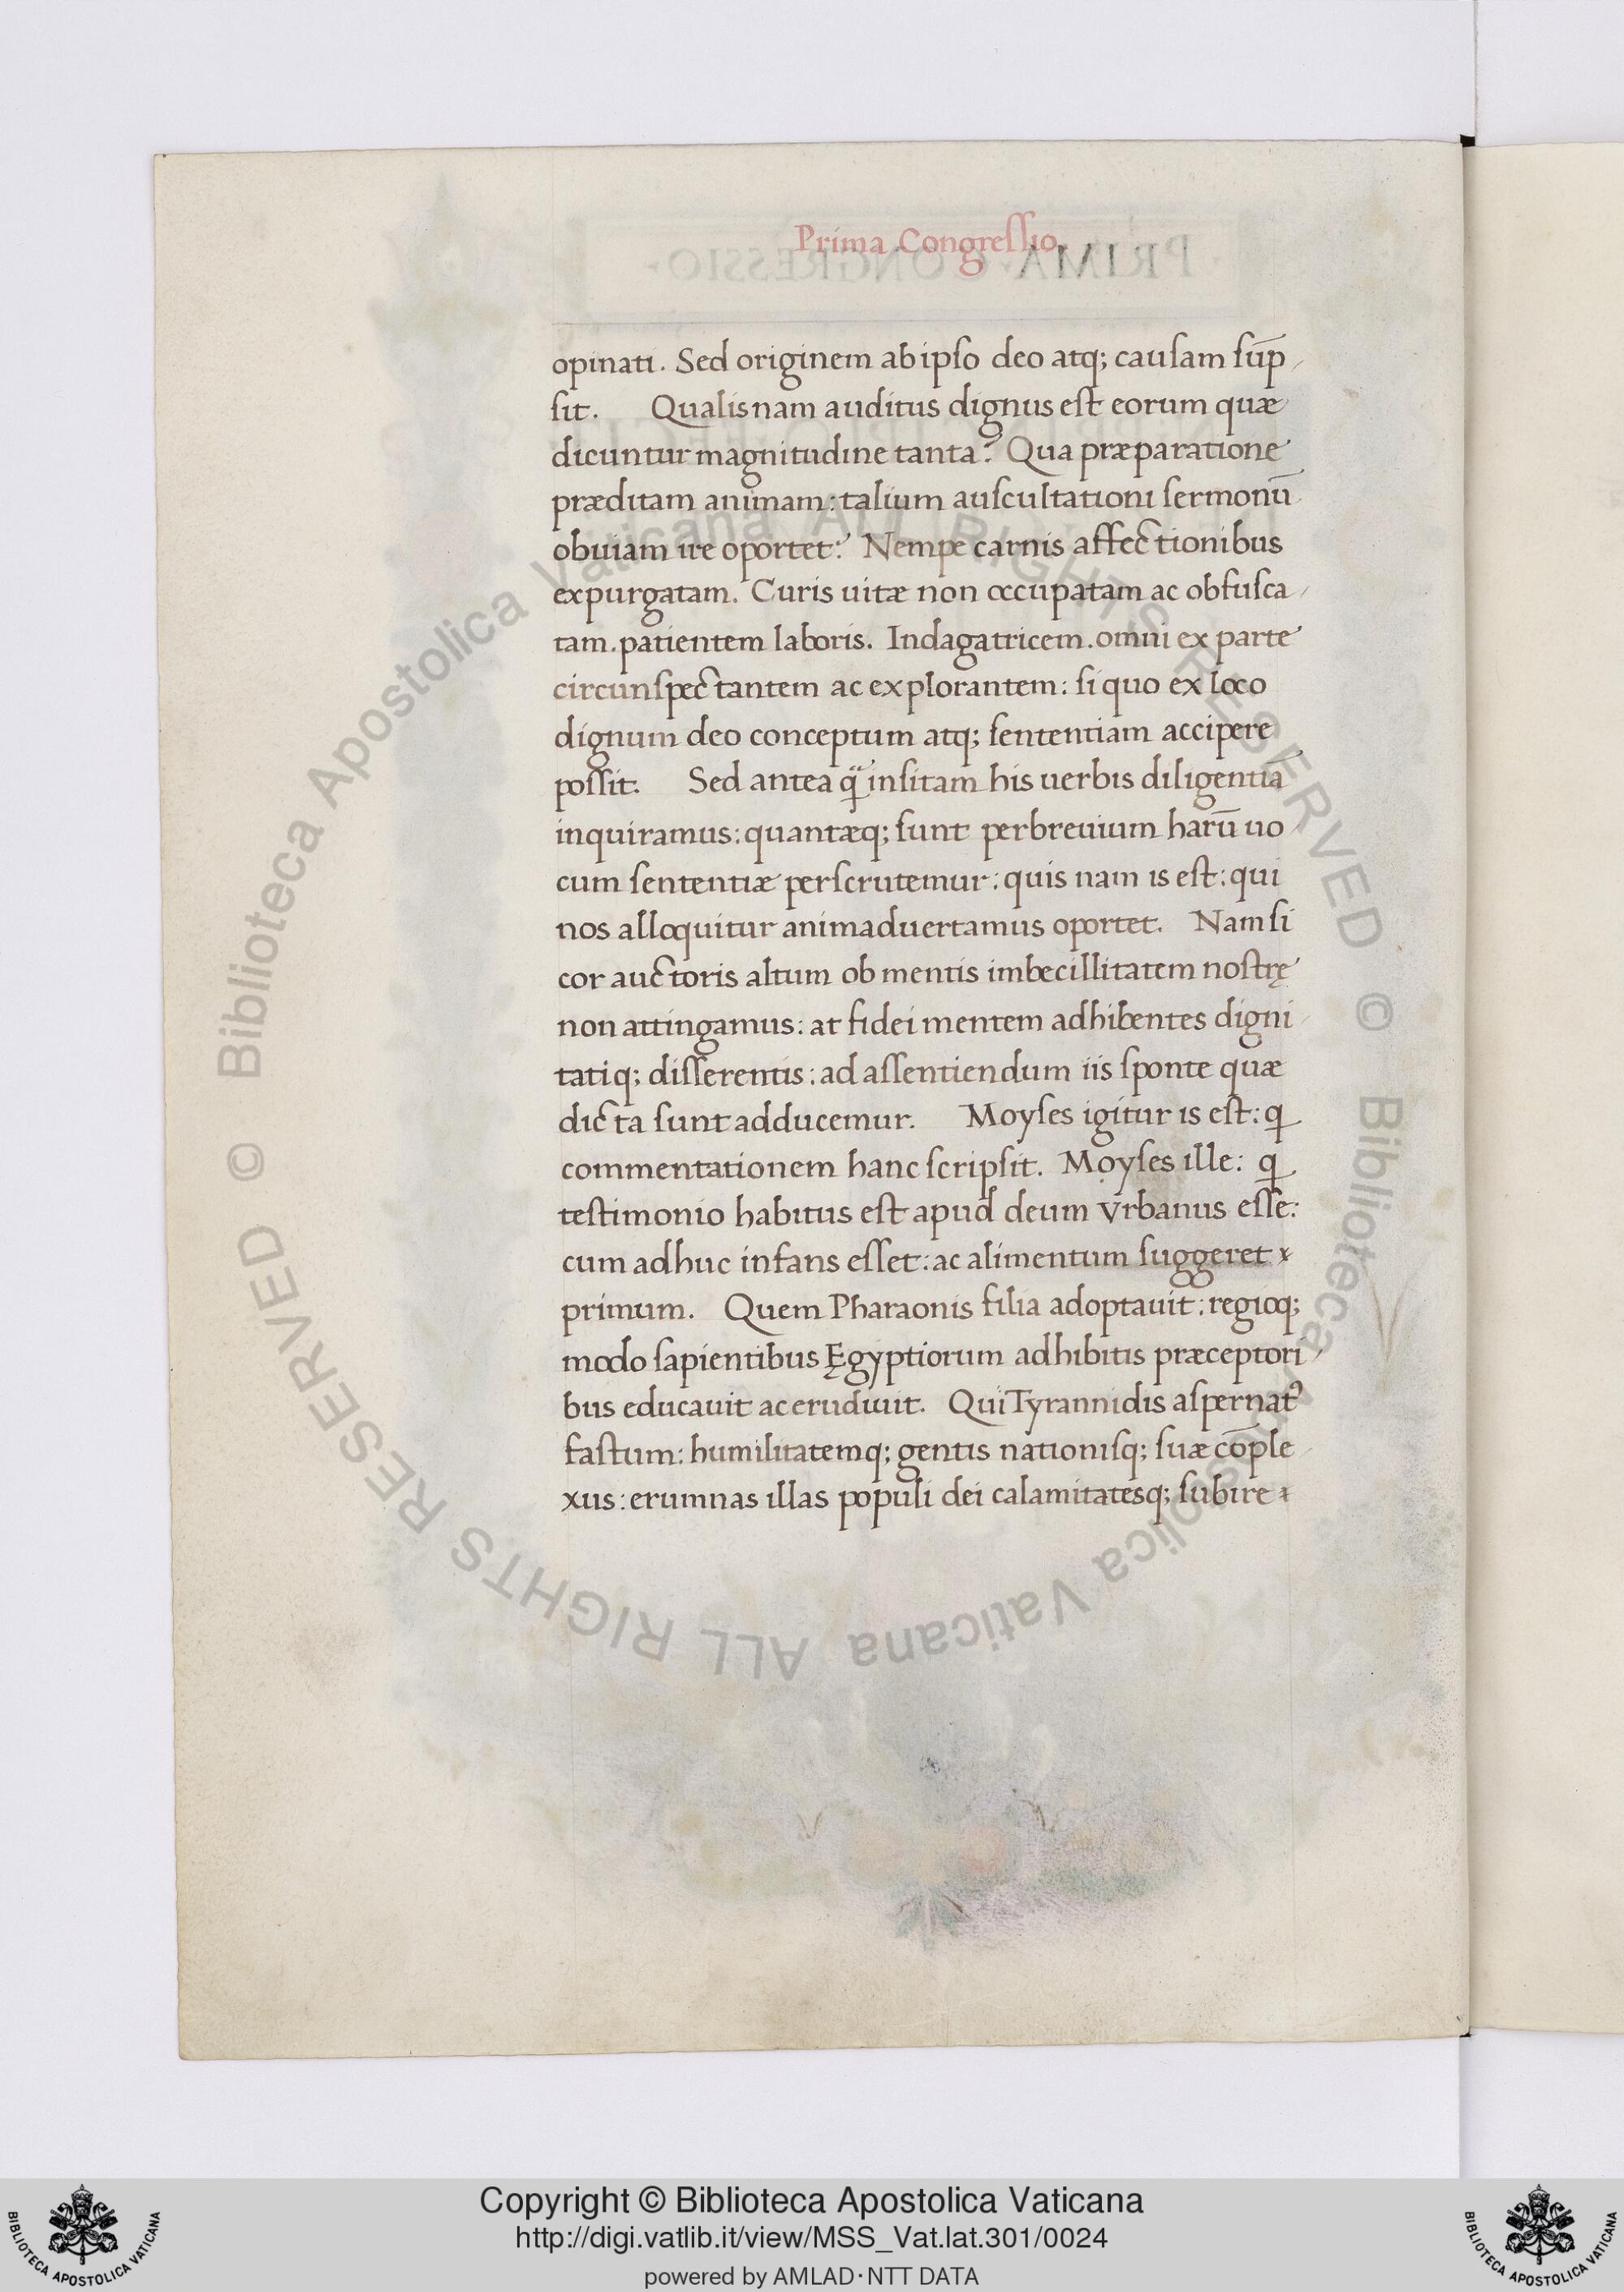 Prima Congreſſio
opinati. Sed originem ab ipſo deo atq; cauſam ſūp
ſit. Qualisnam auditus dignus eſt eorum quæ
dicuntur magnitudine tanta? Qua præparatione
præditam animam: talium auſcultationi ſermonū
obuiam ire oportet? Nempe carnis affectionibus
expurgatam. Curis uitæ non occupatam ac obfuſca
tam. patientem laboris. Indagatricem. omni ex parte
circunſpectantem ac explorantem: ſi quo ex loco
dignum deo conceptum atq; ſententiam accipere
poſſit. Sed antea q̃ inſitam his uerbis diligentia
inquiramus: quantæq; ſunt perbreuium harū uo
cum ſententiæ perſcrutemur: quis nam is eſt: qui
nos alloquitur animaduertamus oportet. Nam ſi
cor auctoris altum ob mentis imbecillitatem noſtrę
non attingamus: at fidei mentem adhibentes digni
tatiq; diſſerentis: ad aſſentiendum iis ſponte quæ
dicta ſunt adducemur. Moyſes igitur is eſt: ꝗ
commentationem hanc ſcripſit. Moyſes ille: ꝗ
teſtimonio habitus eſt apud deum Vrbanus eſſe:
cum adhuc infans eſſet: ac alimentum ſuggeret
primum. Quem Pharaonis filia adoptauit: regioq;
modo ſapientibus Ęgyptiorum adhibitis præceptori
bus educauit ac erudiuit. Qui Tyrannidis aſpernatꝰ
faſtum: humilitatemq; gentis nationiſq; ſuæ cōple
xus: erumnas illas populi dei calamitatesq; ſubire
PRIMA CONGRESSIO
© Biblioteca Apostolica Vaticana ALL RIGHTS RESERVED © Biblioteca Apostolica Vaticana ALL RIGHTS RESERVED
BIBLIOTECA APOSTOLICA VATICANA
Copyright © Biblioteca Apostolica Vaticana
http://digi.vatlib.it/view/MSS_Vat.lat.301/0024
powered by AMLAD·NTT DATA
BIBLIOTECA APOSTOLICA VATICANA